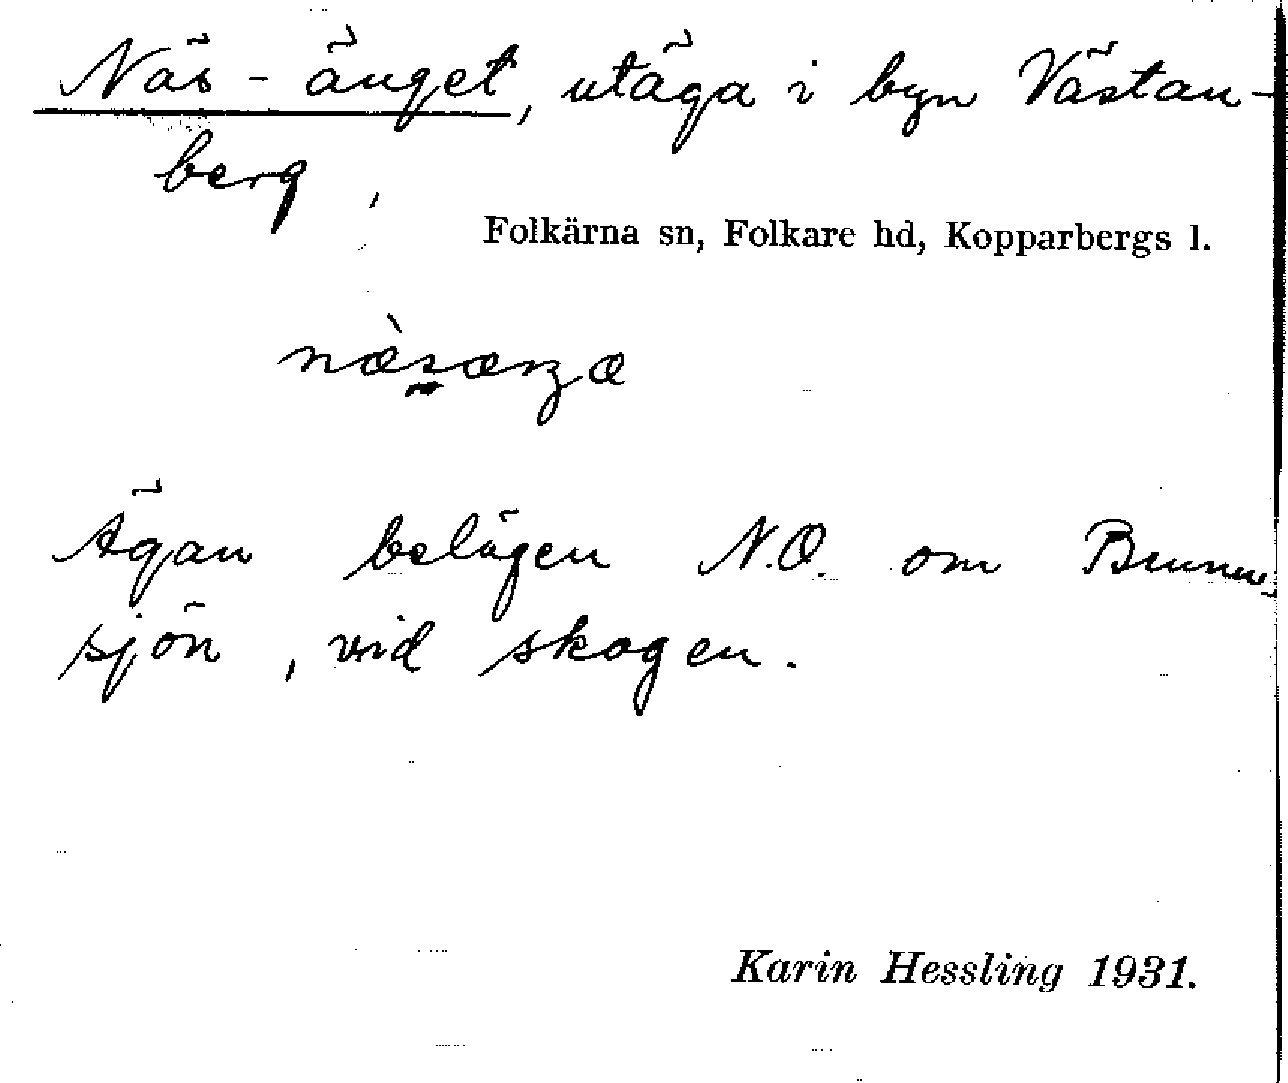 Näs-änget, utäga i byn Västan-
berg,
Folkärna sn, Folkare hd, Kopparbergs l.
næ̀sæŋæ
Ägan belägen N.O. om
sjön, vid skogen.
Karin Hessling 1931.